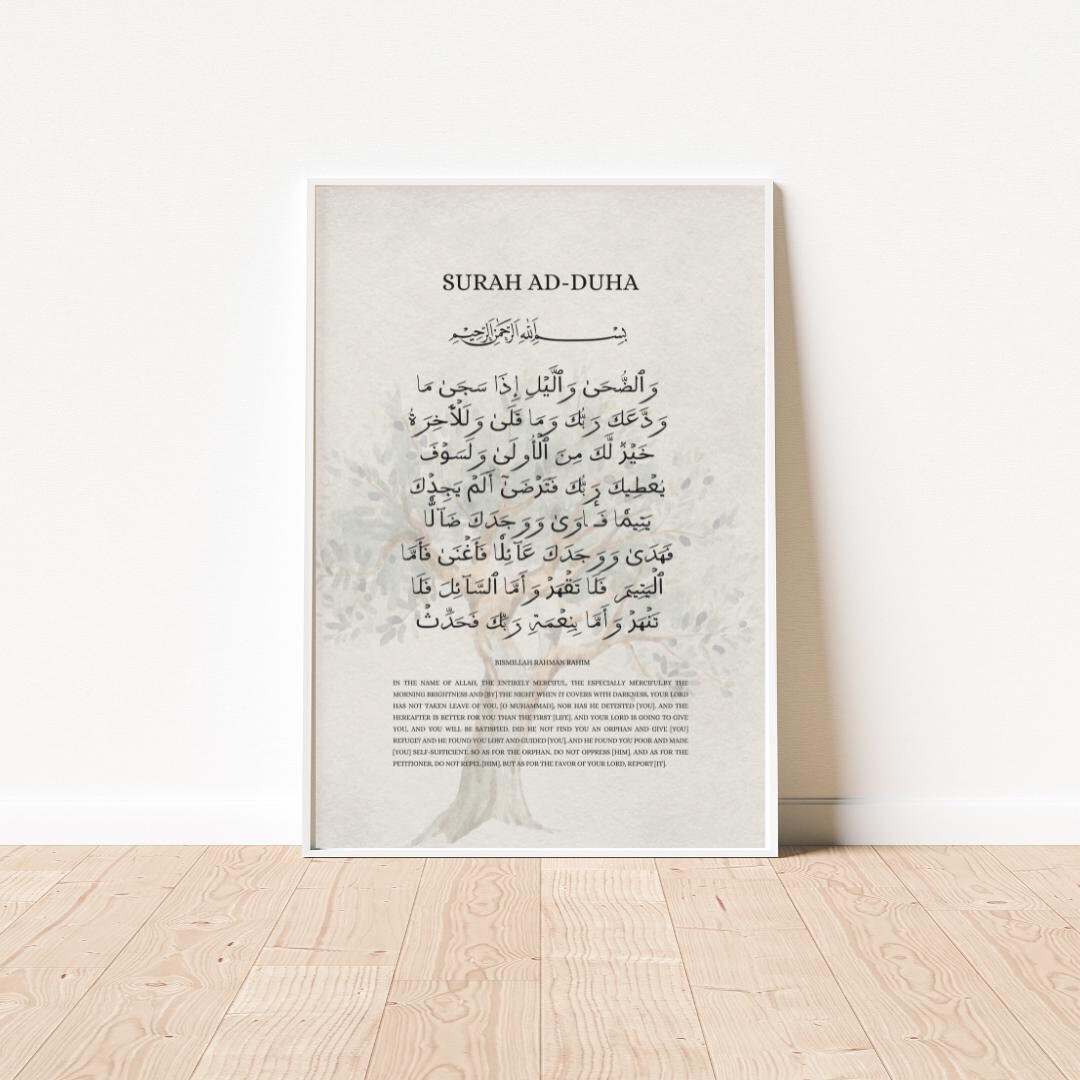 SURAH AD-DUHA
بِسْمِ اللَّهِ الرَّحْمَٰنِ الرَّحِيمِ
وَٱلضُّحَىٰ وَٱلَّيْلِ إِذَا سَجَىٰ مَا
وَدَّعَكَ رَبُّكَ وَمَا قَلَىٰ وَلَلْأَخِرَةُ
خَيْرٌ لَّكَ مِنَ ٱلْأُولَىٰ وَلَسَوْفَ
يُعْطِيكَ رَبُّكَ فَتَرْضَىٰٓ أَلَمْ يَجِدْكَ
يَتِيمًا فَـَٔاوَىٰ وَوَجَدَكَ ضَآلًّا
فَهَدَىٰ وَوَجَدَكَ عَآئِلًا فَأَغْنَىٰ فَأَمَّا
ٱلْيَتِيمَ فَلَا تَقْهَرْ وَأَمَّا ٱلسَّآئِلَ فَلَا
تَنْهَرْ وَأَمَّا بِنِعْمَةِ رَبِّكَ فَحَدِّثْ
BISMILLAH RAHMAN RAHIM
IN THE NAME OF ALLAH, THE ENTIRELY MERCIFUL, THE ESPECIALLY MERCIFUL.BY THE
MORNING BRIGHTNESS AND [BY] THE NIGHT WHEN IT COVERS WITH DARKNESS, YOUR LORD
HAS NOT TAKEN LEAVE OF YOU, [O MUHAMMAD], NOR HAS HE DETESTED [YOU]. AND THE
HEREAFTER IS BETTER FOR YOU THAN THE FIRST [LIFE]. AND YOUR LORD IS GOING TO GIVE
YOU, AND YOU WILL BE SATISFIED. DID HE NOT FIND YOU AN ORPHAN AND GIVE [YOU]
REFUGE? AND HE FOUND YOU LOST AND GUIDED [YOU], AND HE FOUND YOU POOR AND MADE
[YOU] SELF-SUFFICIENT. SO AS FOR THE ORPHAN, DO NOT OPPRESS [HIM]. AND AS FOR THE
PETITIONER, DO NOT REPEL [HIM]. BUT AS FOR THE FAVOR OF YOUR LORD, REPORT [IT].